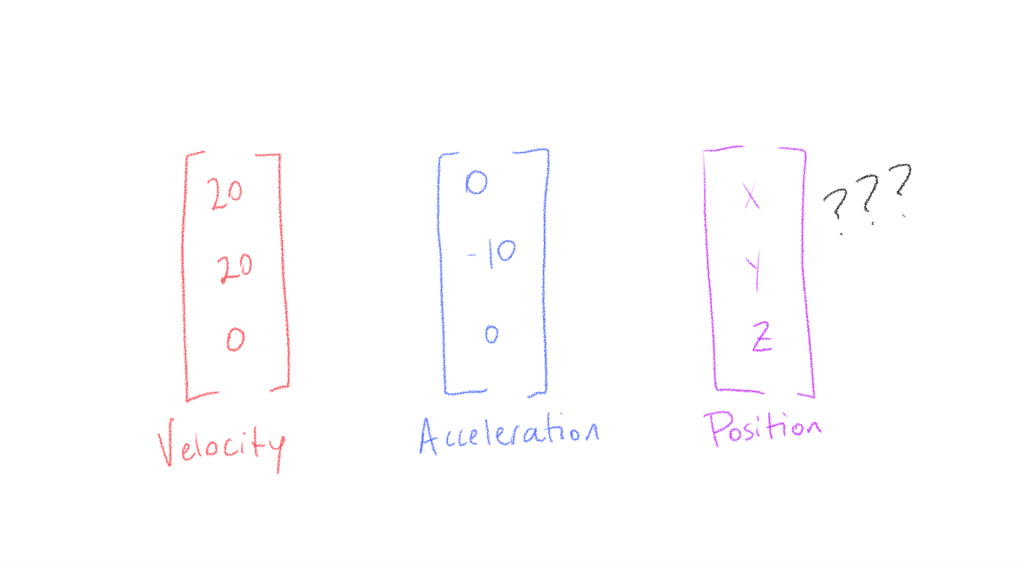 20
20
0
Velocity
0
-10
0
Acceleration
X
Y
Z
???
Position